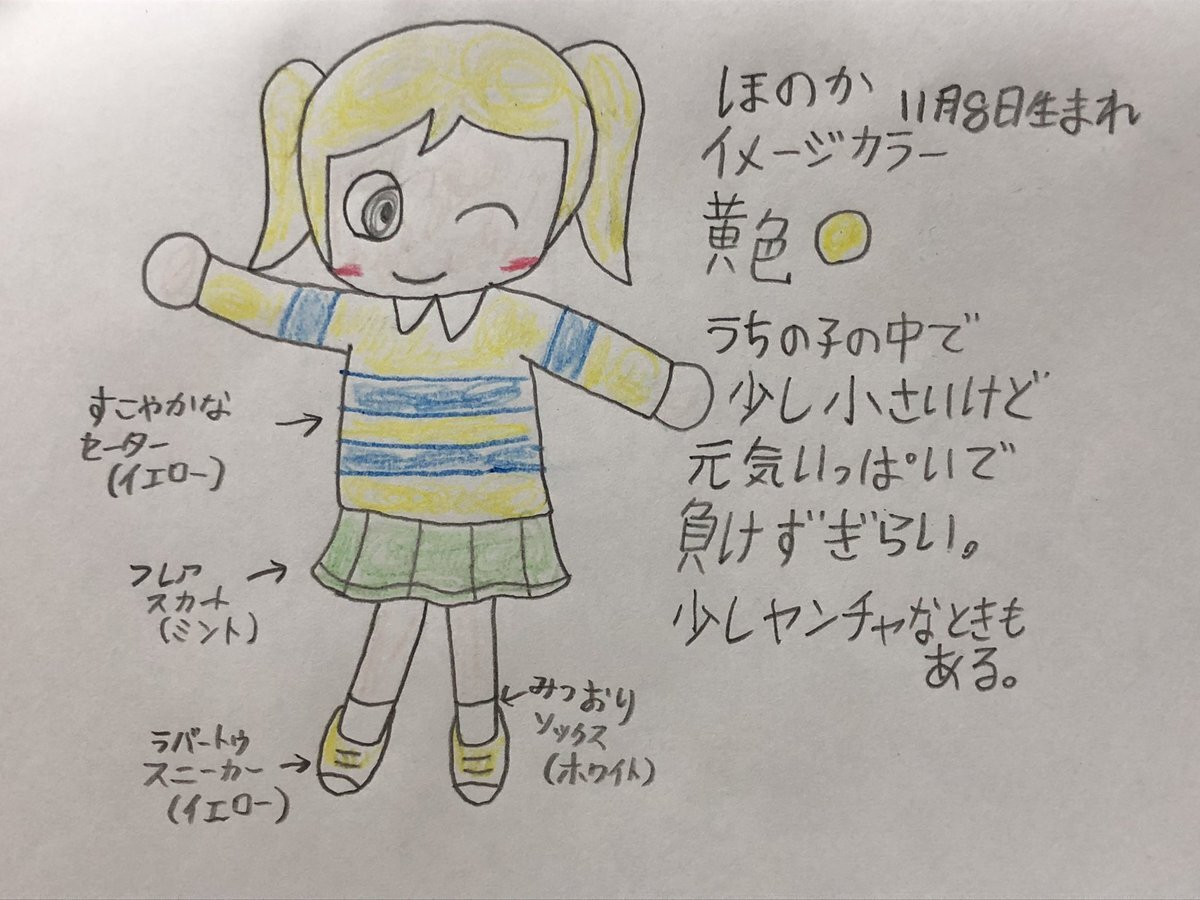 ほのか 11月8日生まれ
イメージカラー
黄色
うちの子の中で
少し小さいけど
元気いっぱいで
負けずぎらい。
少しヤンチャなときも
ある。
すこやかな
セーター
(イエロー)
フレア
スカート
(ミント)
みつおり
ソックス
(ホワイト)
ラバートゥ
スニーカー
(イエロー)